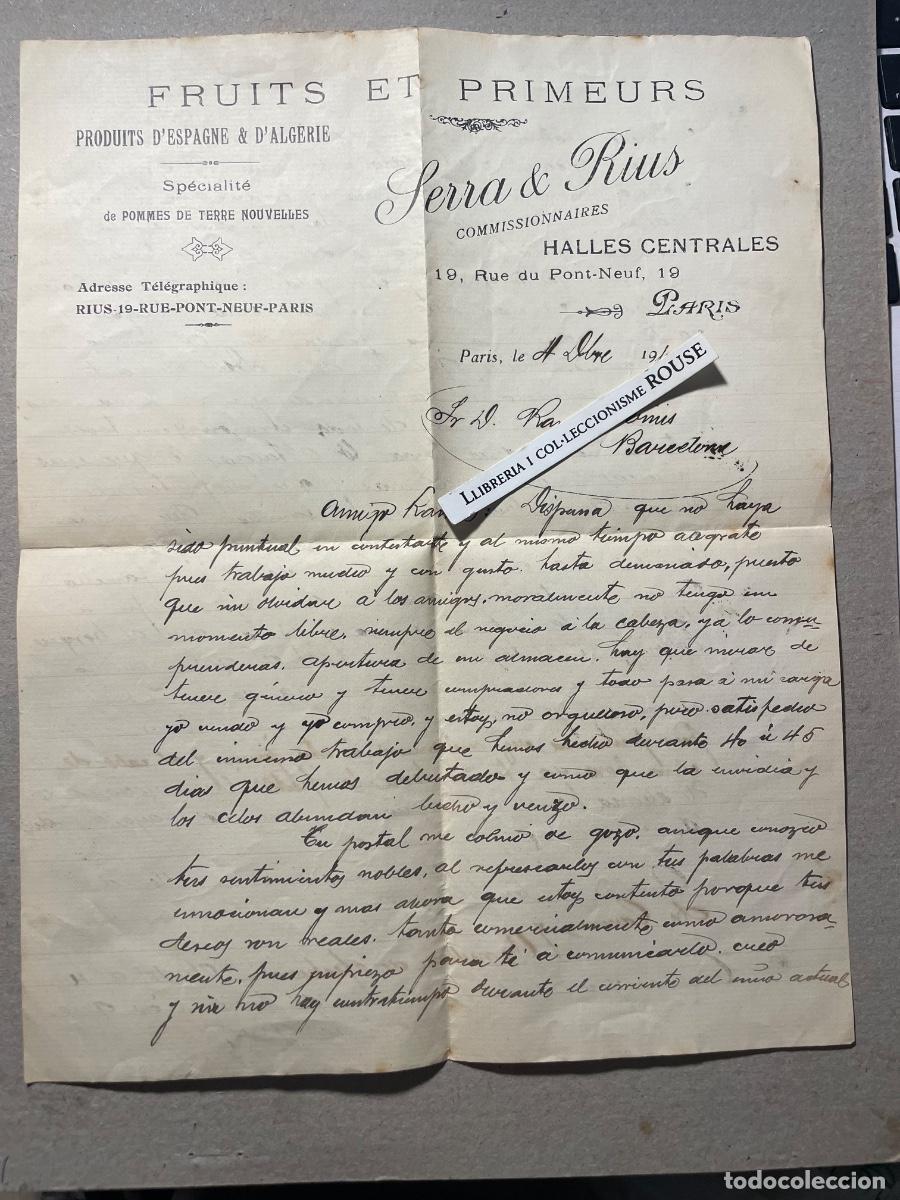 FRUITS ET PRIMEURS
PRODUITS D'ESPAGNE & D'ALGERIE
Spécialité
de POMMES DE TERRE NOUVELLES
Adresse Télégraphique :
RIUS-19-RUE-PONT-NEUF-PARIS
Serra & Rius
COMMISSIONNAIRES
HALLES CENTRALES
19, Rue du Pont-Neuf, 19
PARIS
Paris, le 4 Dbre 191
Sr D.
Barcelona
LLIBRERIA I COL·LECCIONISME ROUSE
Amigo Dispensa que no haya
sido puntual en contestarte y al mismo tiempo alegrate
pues trabajo mucho y con gusto. hasta demasiado, puesto
que sin olvidar a los amigos, moralmente no tengo un
momento libre, siempre el negocio á la cabeza, ya lo com-
prenderas. apertura de un almacen. hay que mirar de
tener género y tener compradores y todo pasa á mi cargo
yo vendo y yo compro, y estoy, no orgulloso, pero satisfecho
del inmenso trabajo que hemos hecho durante 40 á 45
dias que hemos debutado y como que la envidia y
los celos abundan lucho y venzo.
Tu postal me colmó de gozo. aunque conozco
tus sentimientos nobles, al con tus palabras me
emocionan y mas ahora que estoy contento porque tus
deseos son reales. tanto comercialmente como amorosa-
mente, pues empiezo para ti á comunicarlo. creo
y si no hay contratiempo durante el corriente del año actual
todocoleccion